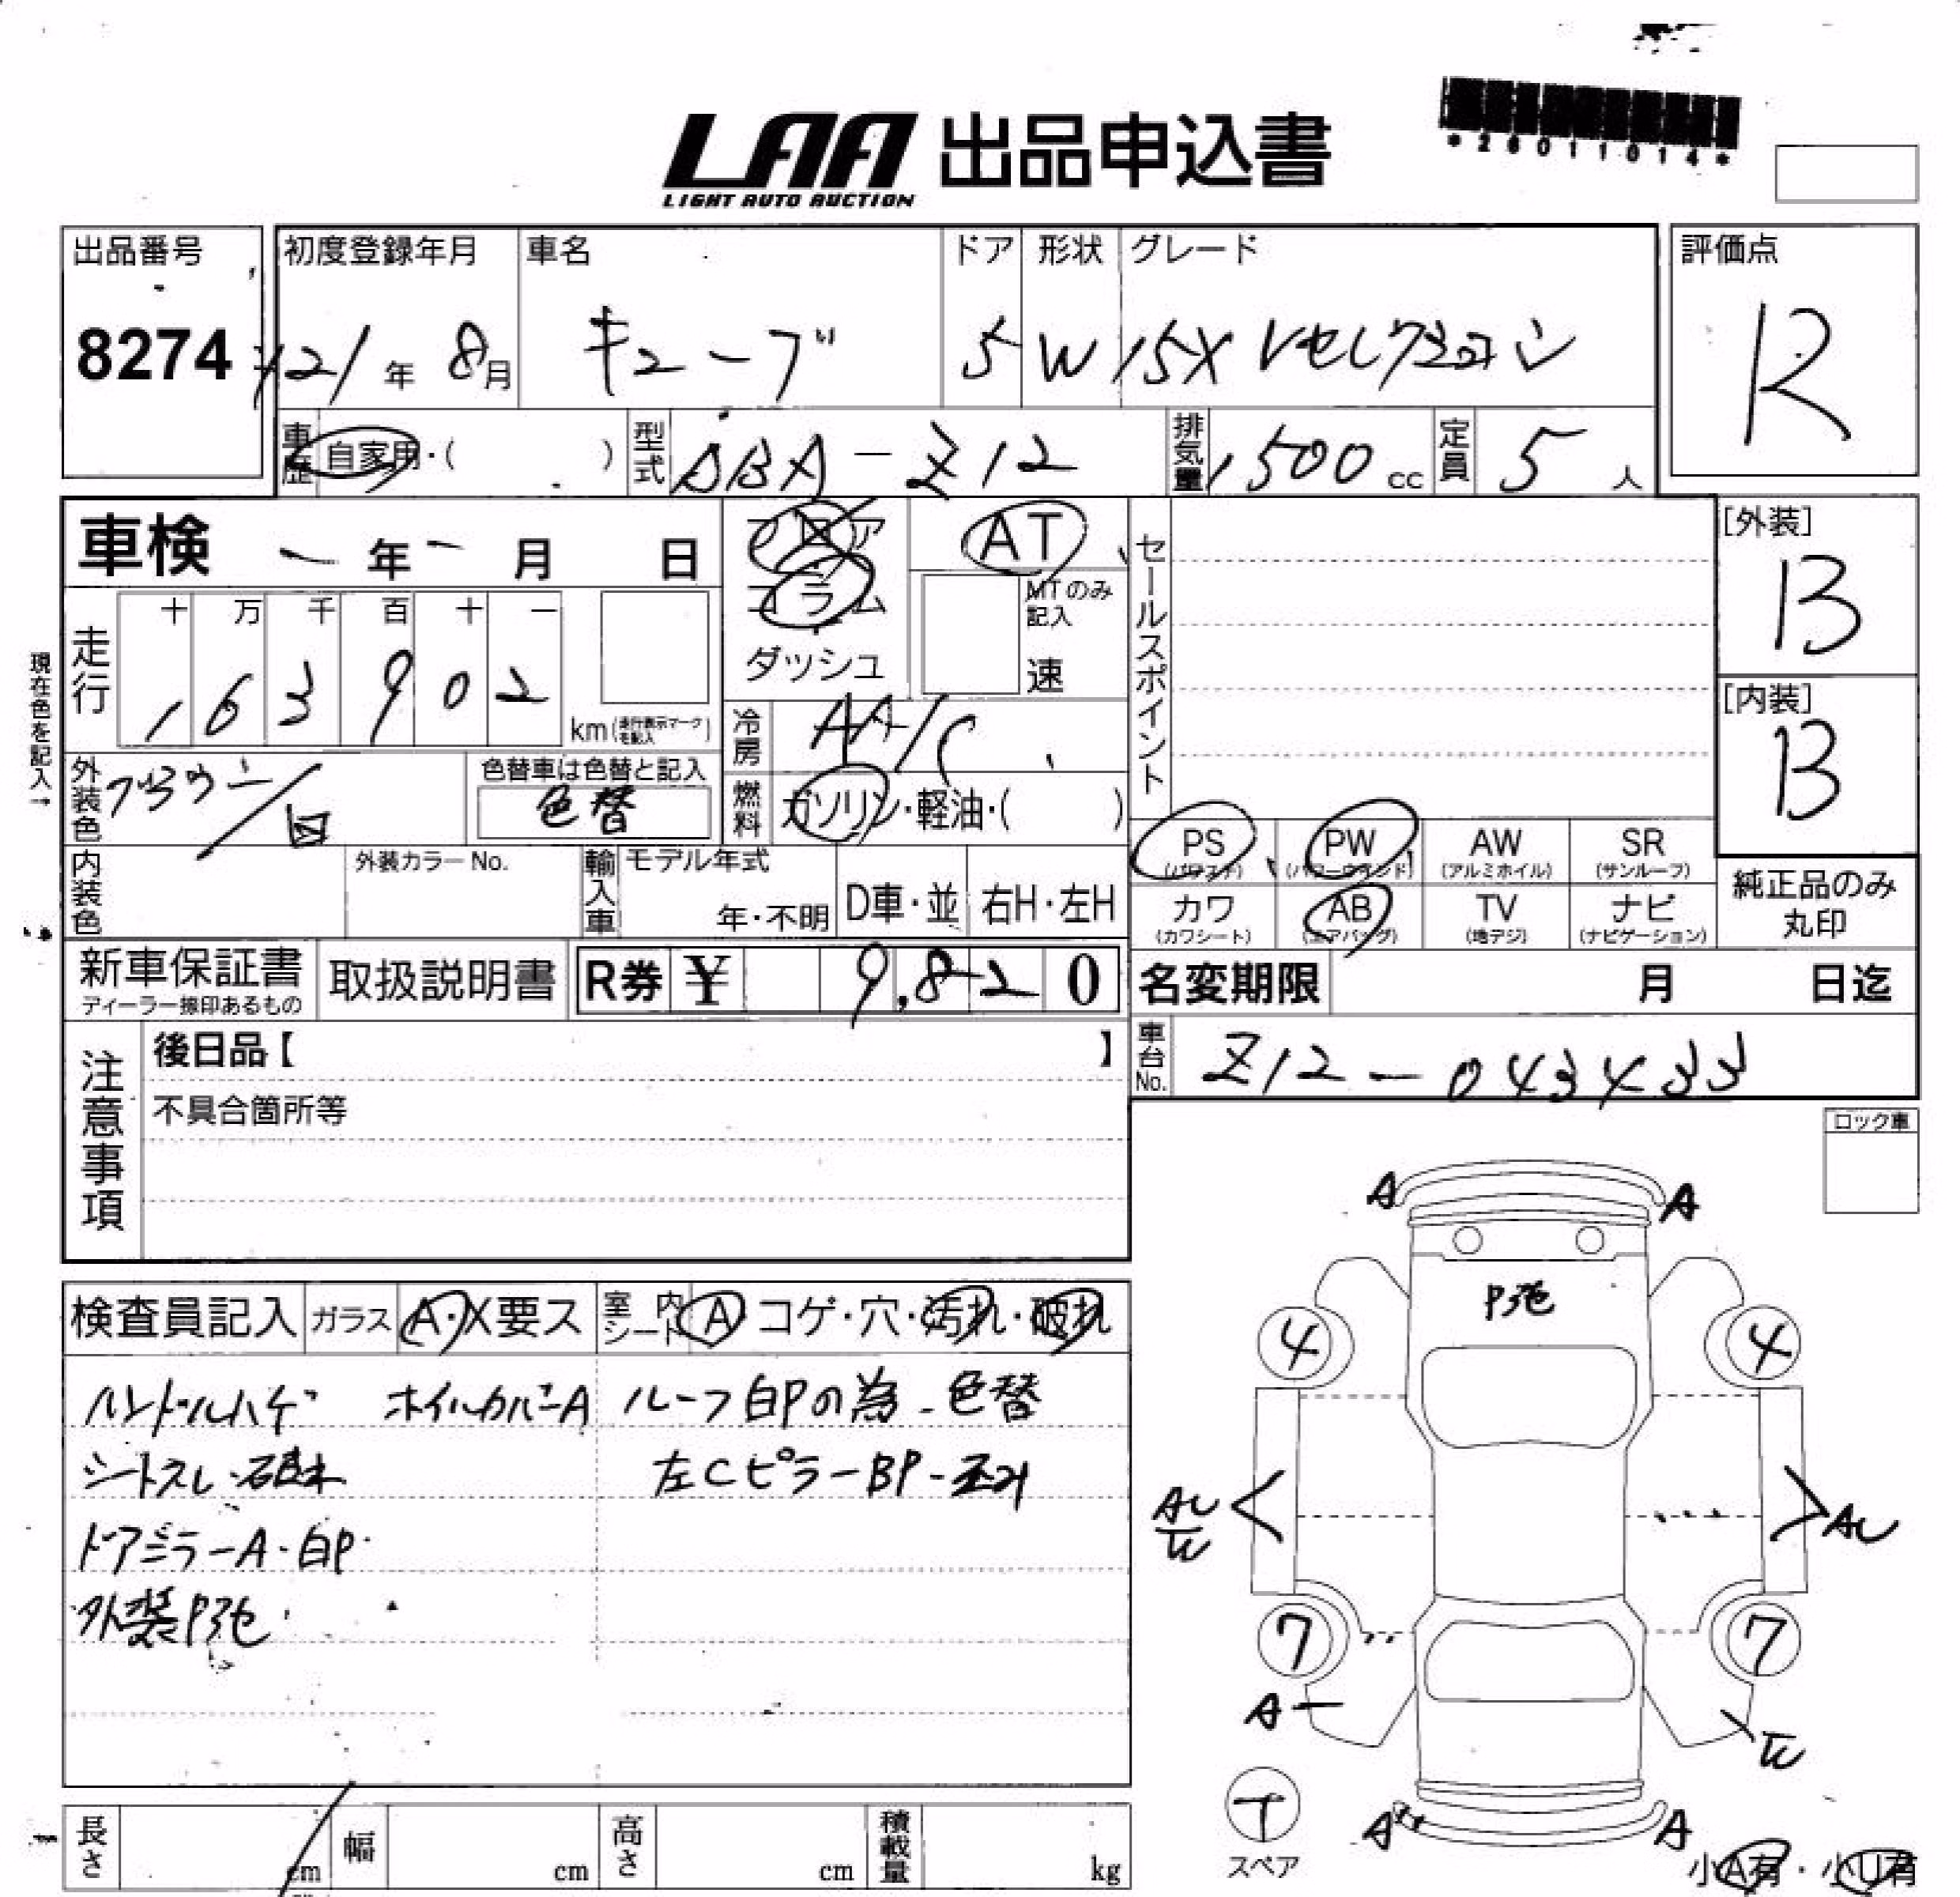 *26011014*
LAA 出品申込書
LIGHT AUTO AUCTION
出品番号
8274
初度登録年月
21年 8月
車名
キューブ
ドア
5
形状
W
グレード
15X Vセレクション
評価点
R
車歴
自家用・( )
型式
DBA-Z12
排気量
1500 cc
定員
5 人
車検 - 年 - 月 日
フロア
コラム
ダッシュ
AT
MTのみ記入
速
セールスポイント
[外装]
B
[内装]
B
現在色を記入→
走行
十 万 千 百 十 一
1 6 3 9 0 2
km(走行表示マークを記入)
冷房
AA/C
燃料
ガソリン・軽油・( )
外装色
ブラウン/白
色替車は色替と記入
色替
内装色
外装カラーNo.
輸入車
モデル年式
年・不明
D車・並
右H・左H
PS
(パワステ)
PW
(パワーウインド)
AW
(アルミホイル)
SR
(サンルーフ)
カワ
(カワシート)
AB
(エアバッグ)
TV
(地デジ)
ナビ
(ナビゲーション)
純正品のみ
丸印
新車保証書
ディーラー捺印あるもの
取扱説明書
R券 ¥ 9,820
名変期限 月 日迄
車台No.
Z12-043433
注意事項
後日品【 】
不具合箇所等
ロック車
検査員記入
ガラス
A・X要ス
室内シート
A コゲ・穴・汚れ・破れ
ハンドルハゲ ホイルカバーA ルーフ白Pの為-色替
シートスレ
左CピラーBP-
ドアミラーA・白P
外装P褪色
A A
P褪色
4 4
AU
AU
7 7
A
A A
スペア
小A有・小U有
長さ cm
幅 cm
高さ cm
積載量 kg